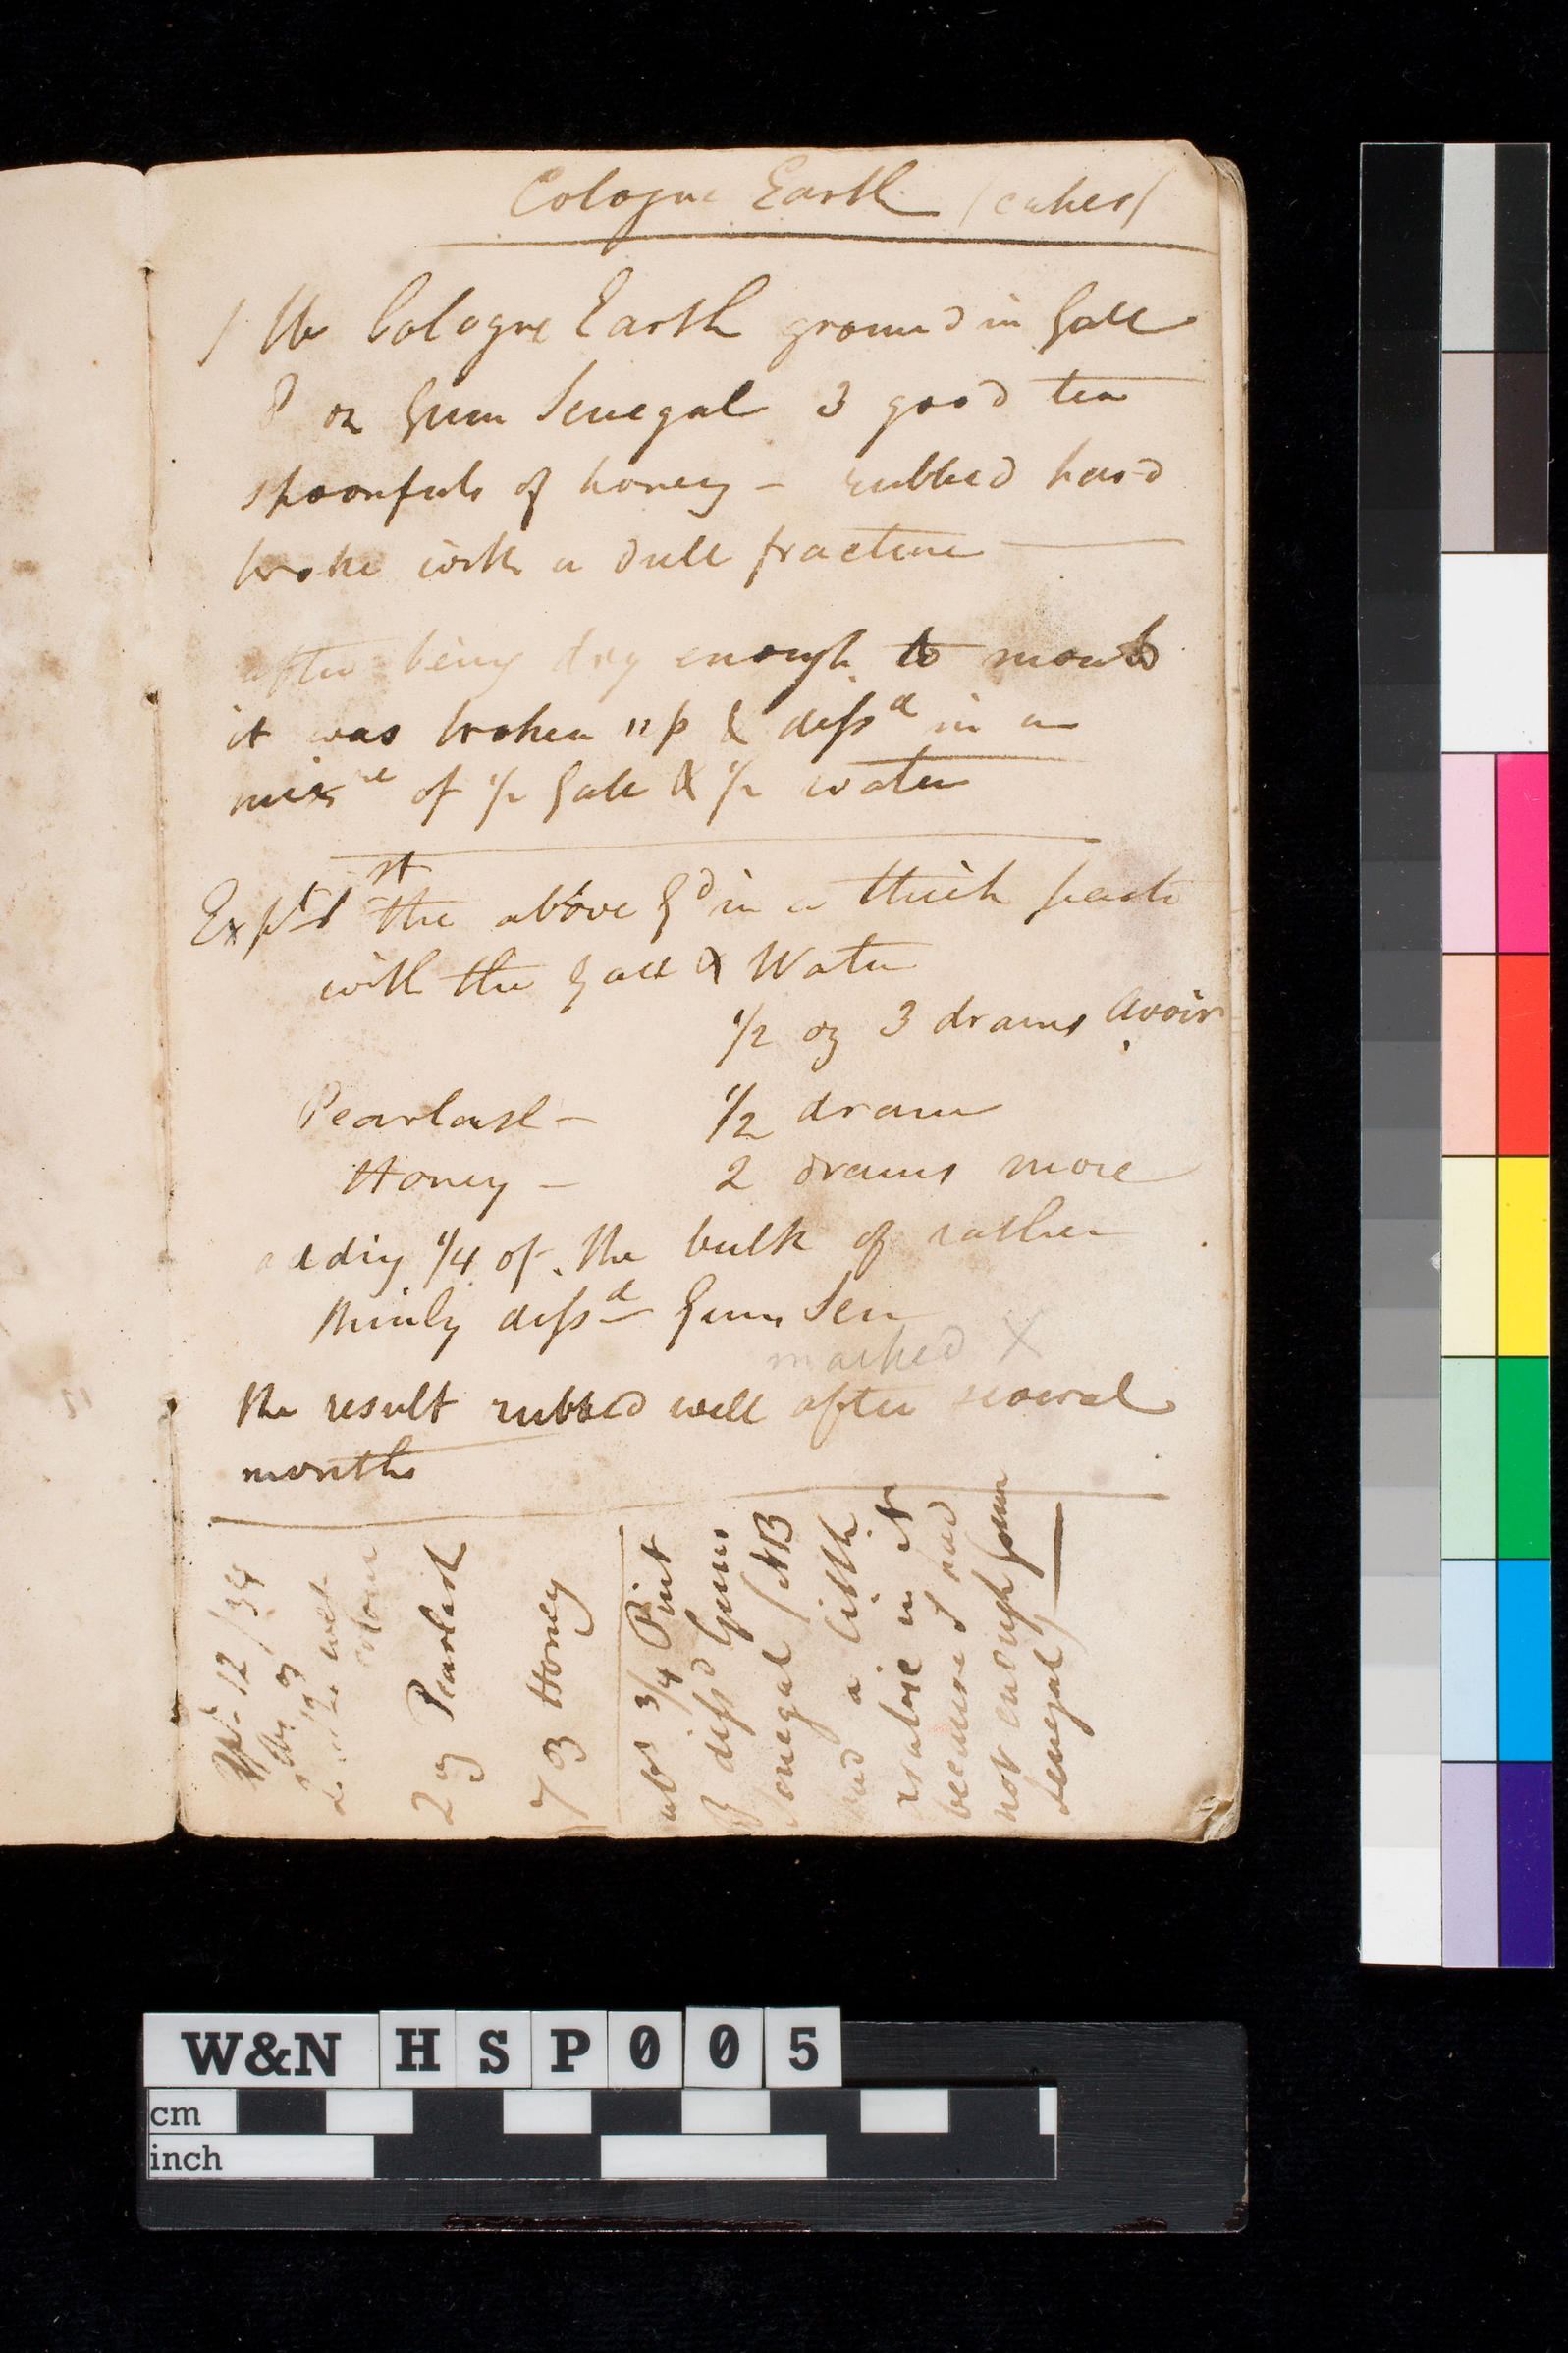 Cologne Earth (cakes)
1 lb Cologne Earth ground in Gall
8 oz Gum Senegal 3 good tea
spoonfuls of honey - rubbed hard
broke with a dull fracture
after being dry enough to mould
it was broken up & dissd in a
mixre of 1/2 Gall & 1/2 water
Expt 1st the above Gd in a thick paste
with the Gall & Water
1/2 oz 3 drams Avoir
Pearlash - 1/2 dram
Honey - 2 drams more
adding 1/4 of the bulk of rather
thinly dissd Gum Sen
marked X
the result rubbed well after several
months
12/34
wet
colour
2 oz Pearlash
7 Honey
abt 3/4 Pint
dissd Gum
Senegal (NB
had a little
in it
because I had
not enough Gum
Senegal)
W&N HSP005
cm
inch